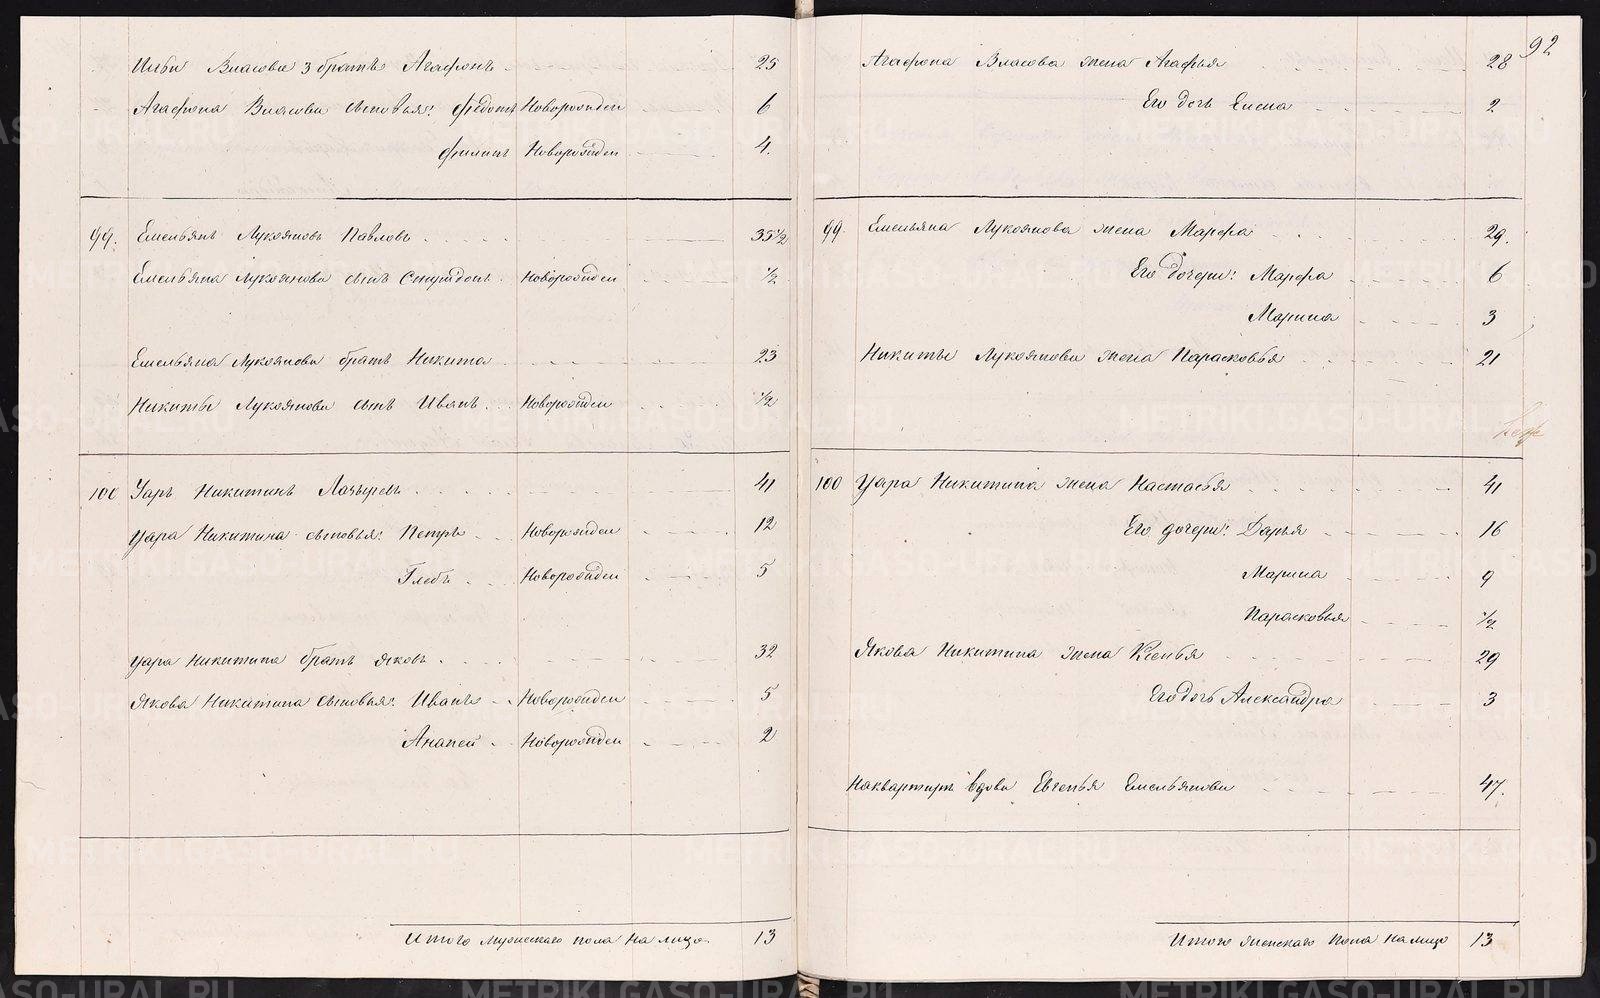 Ильи Власова 3 братъ Агафонъ 25
Агафона Власова сыновья: Федотъ Новорожден 6
Филипъ Новорожден 4.
99. Емельянъ Лукояновъ Павловъ 35 1/2
Емельяна Лукоянова сынъ Спиридонъ Новорожден 1/2
Емельяна Лукоянова братъ Никита 23
Никиты Лукоянова сынъ Иванъ Новорожден 1/2
100 Уаръ Никитинъ Лазыревъ 41
Уара Никитина сыновья: Петръ Новорожден 12
Глебъ Новорожден 5
Уара Никитина братъ Яковъ 32
Якова Никитина сыновья: Иванъ Новорожден 5
Ананей Новорожден 2
Итого мужескаго пола на лицо 13
92
Агафона Власова жена Агафья 28
Его дочь Елена 2
99. Емельяна Лукоянова жена Марфа 29.
Его дочери: Марфа 6
Марина 3
Никиты Лукоянова жена Парасковья 21
100 Уара Никитина жена Настасья 41
Его дочери: Дарья 16
Марина 9
Парасковья 1/2
Якова Никитина жена Ксенья 29
Его дочь Александра 3
На квартире вдова Евгенья Емельянова 47.
Итого женскаго пола на лицо 13
METRIKI.GASO-URAL.RU